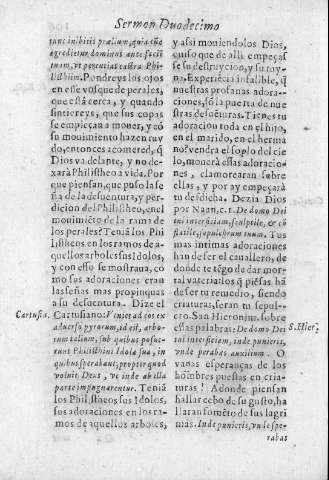 Sermon Duodecimo
tunc inibitis prælium, quia tūc
egredietur dominus ante faciē
tuam, vt percutiat castra Phi-
listhiim. Pondreys los ojos
en esse vosque de perales,
que està cerca, y quando
sintiereys, que sus copas
se empieçan a mouer, y cō
su mouimiento hazen ruy
do, entonces acomered, q̄
Dios va delante, y no de-
xarà Philistheo a vida. Por
que piensan, que puso la se
ña de la desuentura, y per-
dicion del Philistheo, en el
monimiēto de la rama de
los perales? Tenià los Phi
listheos en los ramos de a-
quellos arboles sus Idolos,
y con esso se mostraua, có
mo sus adoraciones eran
las señas mas propinquas
a su desuentura. Dize el
Cartusia. Cartusiano: Veniet ad eos ex
aduerso pyrorum, id est, arbo-
rum talium, sub quibus posue-
runt Philisthini Idola sua, in
quibus sperabant, propter quod
voluit Deus, vt inde ab illa
parte impugnarentur. Tenià
los Philistheos sus Idolos,
sus adoraciones en los ra-
mos de aquellos arboles,
y assi mouiendolos Dios,
quiso que de alli empeças
se su destruycion, y su ruy-
na. Experiēcia infalible, q̄
nuestras profanas adora-
ciones, só la puerta de nue
stras desuēturas. Tienes tu
adoracion toda en el hijo,
en el marido, en el herma
no? vendra el soplo del cie
lo, mouerà essas adoracio-
nes, clamorearan sobre
ellas, y por ay empeçarà
tu desdicha. Dezia Dios
por Naun. c. 1. De domo Dei
tui interficiam, sculptile, & cō
flatile, sepulchrum tuum. Tus
mas intimas adoraciones
han de ser el cauallero, de
donde te tēgo de dar mor-
tal vateria: los q̄ piēsas há
de ser tu remedio, siendo
criaturas, seran tu sepul-
cro. San Hieronim. sobre
essas palabras: De domo Dei S. Hier.
tui interficiam, inde punieris,
vnde perabas auxilium. O
vanas esperanças de los
hombres puestas en cria-
turas! Adonde piensan
hallar cebo de su gusto, ha
llaran somēto de sus lagri
mas. Inde punieris, vnde spe-
rabas